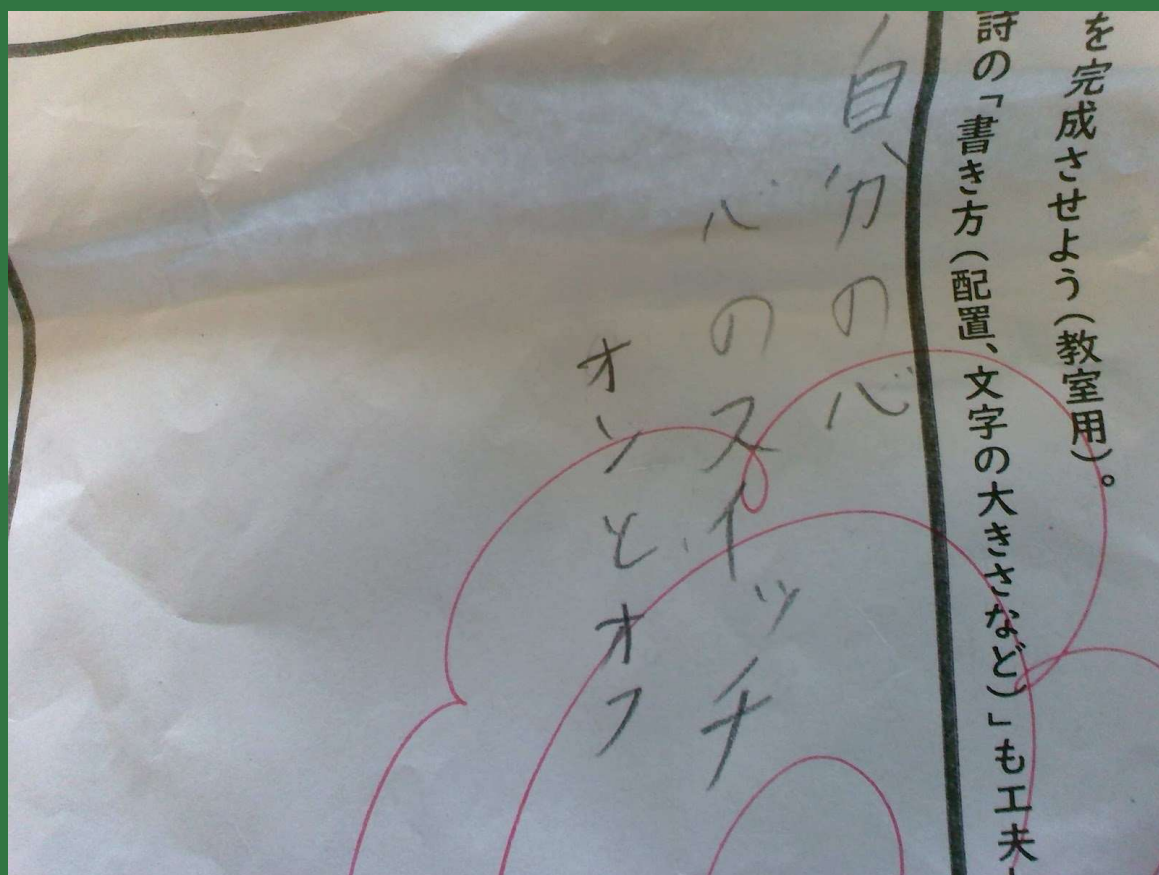 を完成させよう(教室用)。
詩の「書き方(配置、文字の大きさなど)」も工夫
自分の心
心のスイッチ
オンとオフ